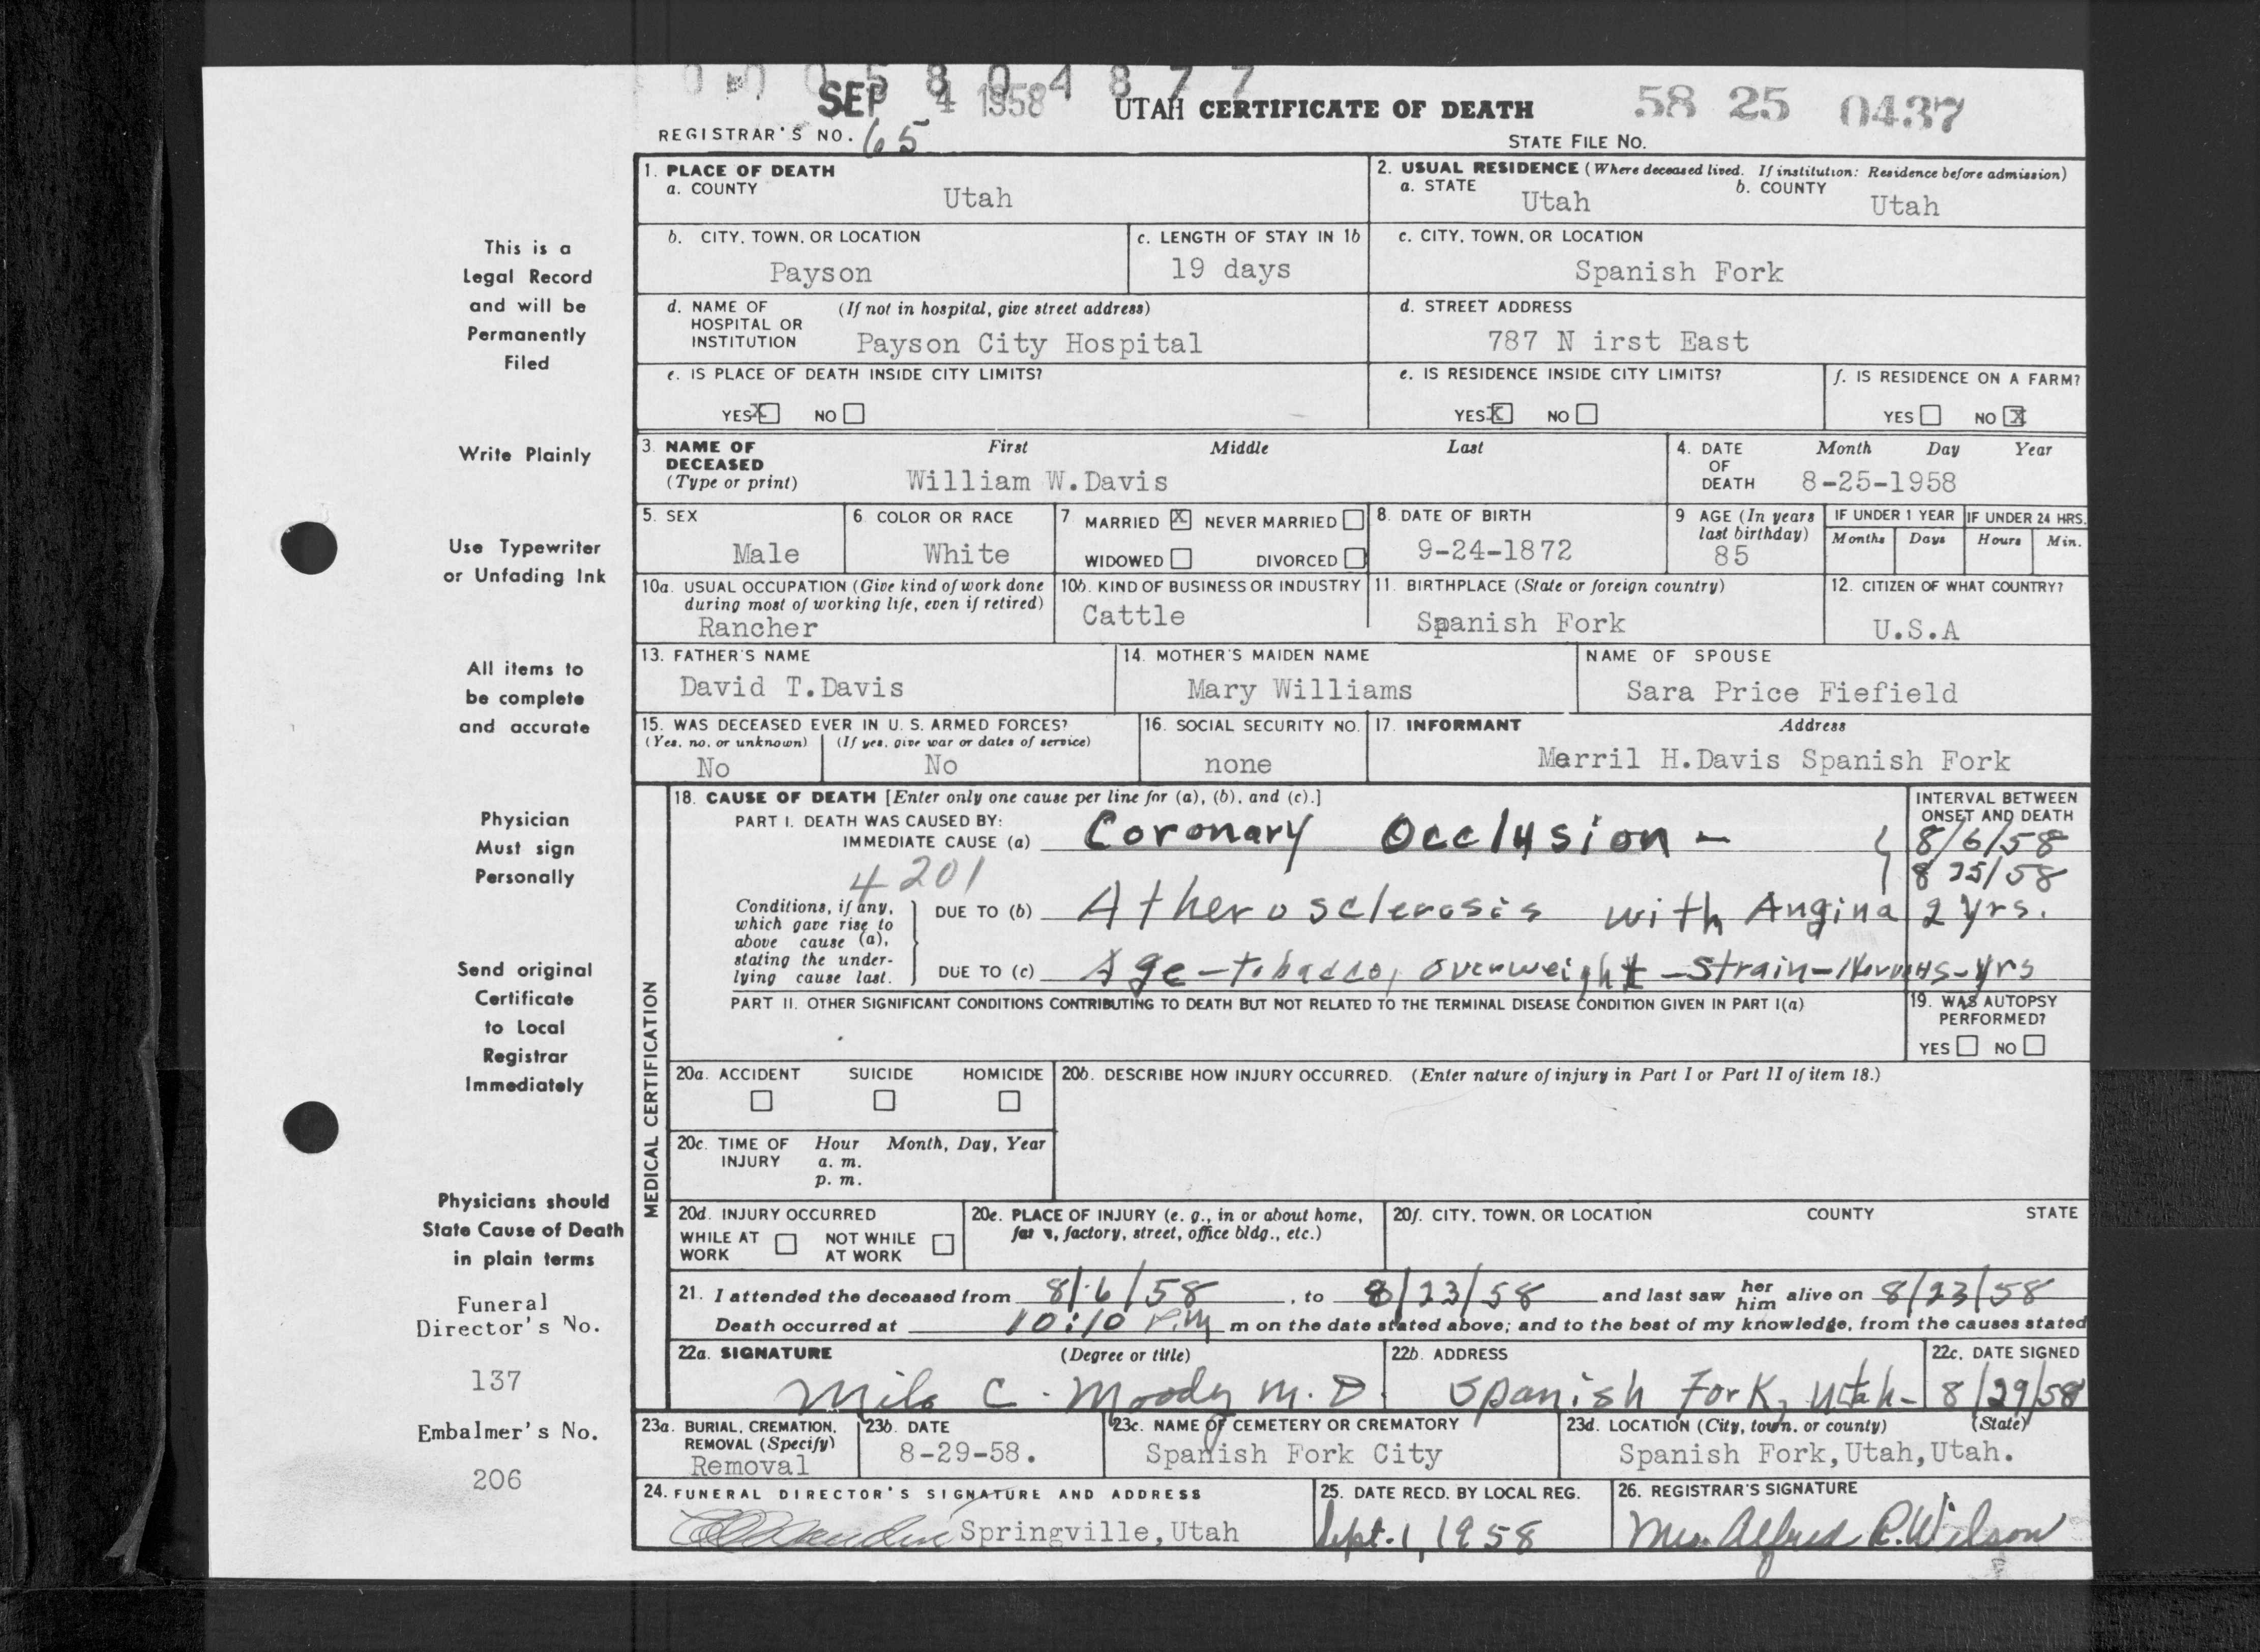 0 0 0 5 8 0 4 8 7 7
SEP 4 1958 UTAH CERTIFICATE OF DEATH 58 25 0437
REGISTRAR'S NO. 65 STATE FILE NO.
1. PLACE OF DEATH
a. COUNTY
Utah
2. USUAL RESIDENCE (Where deceased lived. If institution: Residence before admission)
a. STATE b. COUNTY
Utah Utah
b. CITY, TOWN, OR LOCATION
Payson
c. LENGTH OF STAY IN 1b
19 days
c. CITY, TOWN, OR LOCATION
Spanish Fork
d. NAME OF (If not in hospital, give street address)
HOSPITAL OR
INSTITUTION Payson City Hospital
d. STREET ADDRESS
787 N irst East
e. IS PLACE OF DEATH INSIDE CITY LIMITS?
YES X NO
e. IS RESIDENCE INSIDE CITY LIMITS?
YES X NO
f. IS RESIDENCE ON A FARM?
YES NO X
3. NAME OF First Middle Last
DECEASED
(Type or print) William W.Davis
4. DATE Month Day Year
OF
DEATH 8-25-1958
5. SEX
Male
6 COLOR OR RACE
White
7 MARRIED X NEVER MARRIED
WIDOWED DIVORCED
8. DATE OF BIRTH
9-24-1872
9 AGE (In years
last birthday)
85
IF UNDER 1 YEAR IF UNDER 24 HRS.
Months Days Hours Min.
10a. USUAL OCCUPATION (Give kind of work done
during most of working life, even if retired)
Rancher
10b. KIND OF BUSINESS OR INDUSTRY
Cattle
11. BIRTHPLACE (State or foreign country)
Spanish Fork
12. CITIZEN OF WHAT COUNTRY?
U.S.A
13. FATHER'S NAME
David T.Davis
14. MOTHER'S MAIDEN NAME
Mary Williams
NAME OF SPOUSE
Sara Price Fiefield
15. WAS DECEASED EVER IN U. S. ARMED FORCES?
(Yes, no, or unknown) (If yes, give war or dates of service)
No No
16. SOCIAL SECURITY NO.
none
17. INFORMANT Address
Merril H.Davis Spanish Fork
MEDICAL CERTIFICATION
18. CAUSE OF DEATH [Enter only one cause per line for (a), (b), and (c).]
INTERVAL BETWEEN
ONSET AND DEATH
PART I. DEATH WAS CAUSED BY:
IMMEDIATE CAUSE (a) Coronary Occlusion - 8/6/58
4201 8 25/58
Conditions, if any,
which gave rise to
above cause (a),
stating the under-
lying cause last.
DUE TO (b) Atherosclerosis with Angina 2 yrs.
DUE TO (c) Age-tobacco, overweight-strain-Nervous-yrs
PART II. OTHER SIGNIFICANT CONDITIONS CONTRIBUTING TO DEATH BUT NOT RELATED TO THE TERMINAL DISEASE CONDITION GIVEN IN PART I(a)
19. WAS AUTOPSY
PERFORMED?
YES NO
20a. ACCIDENT SUICIDE HOMICIDE
20b. DESCRIBE HOW INJURY OCCURRED. (Enter nature of injury in Part I or Part II of item 18.)
20c. TIME OF Hour Month, Day, Year
INJURY a. m.
p. m.
20d. INJURY OCCURRED
WHILE AT NOT WHILE
WORK AT WORK
20e. PLACE OF INJURY (e. g., in or about home,
factory, street, office bldg., etc.)
20f. CITY, TOWN, OR LOCATION COUNTY STATE
21. I attended the deceased from 8/6/58, to 8/23/58 and last saw her him alive on 8/23/58
Death occurred at 10:10 P.M m on the date stated above; and to the best of my knowledge, from the causes stated
22a. SIGNATURE (Degree or title)
Milo C. Moody M.D.
22b. ADDRESS
Spanish Fork, Utah-
22c. DATE SIGNED
8/29/58
23a. BURIAL, CREMATION,
REMOVAL (Specify)
Removal
23b. DATE
8-29-58.
23c. NAME OF CEMETERY OR CREMATORY
Spanish Fork City
23d. LOCATION (City, town, or county) (State)
Spanish Fork,Utah,Utah.
24. FUNERAL DIRECTOR'S SIGNATURE AND ADDRESS
Springville,Utah
25. DATE RECD. BY LOCAL REG.
Sept. 1, 1958
26. REGISTRAR'S SIGNATURE
Mrs. Alfred R. Wilson
This is a
Legal Record
and will be
Permanently
Filed
Write Plainly
Use Typewriter
or Unfading Ink
All items to
be complete
and accurate
Physician
Must sign
Personally
Send original
Certificate
to Local
Registrar
Immediately
Physicians should
State Cause of Death
in plain terms
Funeral
Director's No.
137
Embalmer's No.
206